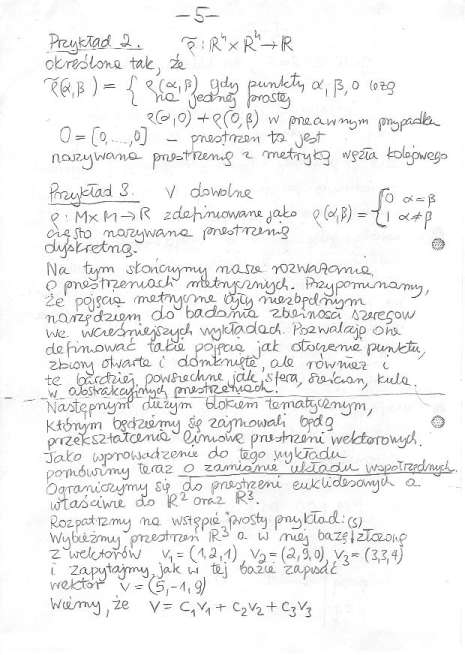 -5-
Przykład 2. ρ̃ : ℝⁿ × ℝⁿ → ℝ
określone tak, że
ρ̃(α,β) = { ρ(α,β) gdy punkty α, β, 0 leżą
na jednej prostej
ρ(α,0) + ρ(0,β) w przeciwnym przypadku
0 = [0,...,0] – przestrzeń ta jest
nazywana przestrzenią z metryką węzła kolejowego
Przykład 3. V dowolne
ρ : M×M → ℝ zdefiniowane jako ρ(α,β) = { 0 α=β
1 α≠β
często nazywana przestrzenią
dyskretną.
Na tym skończymy nasze rozważania
o przestrzeniach metrycznych. Przypominamy,
że pojęcia metryczne były niezbędnym
narzędziem do badania zbieżności szeregów
we wcześniejszych wykładach. Pozwalają one
definiować takie pojęcia jak otoczenie punktu,
zbiory otwarte i domknięte, ale również i
te bardziej powszechne jak sfera, sześcian, kula
w abstrakcyjnych przestrzeniach.
Następnym dużym blokiem tematycznym,
którym będziemy się zajmowali będą
przekształcenia liniowe przestrzeni wektorowych.
Jako wprowadzenie do tego wykładu
pomówimy teraz o zamianie układu współrzędnych.
Ograniczymy się do przestrzeni euklidesowych a
właściwie do ℝ² oraz ℝ³.
Rozpatrzmy na wstępie prosty przykład: (s)
Wybieźmy przestrzeń ℝ³ a w niej bazę złożoną
z wektorów v₁ = (1,2,1) v₂ = (2,9,0) v₃ = (3,3,4)
i zapytajmy, jak w tej bazie zapisać
wektor v = (5,-1,9)
Wiemy, że v = c₁v₁ + c₂v₂ + c₃v₃